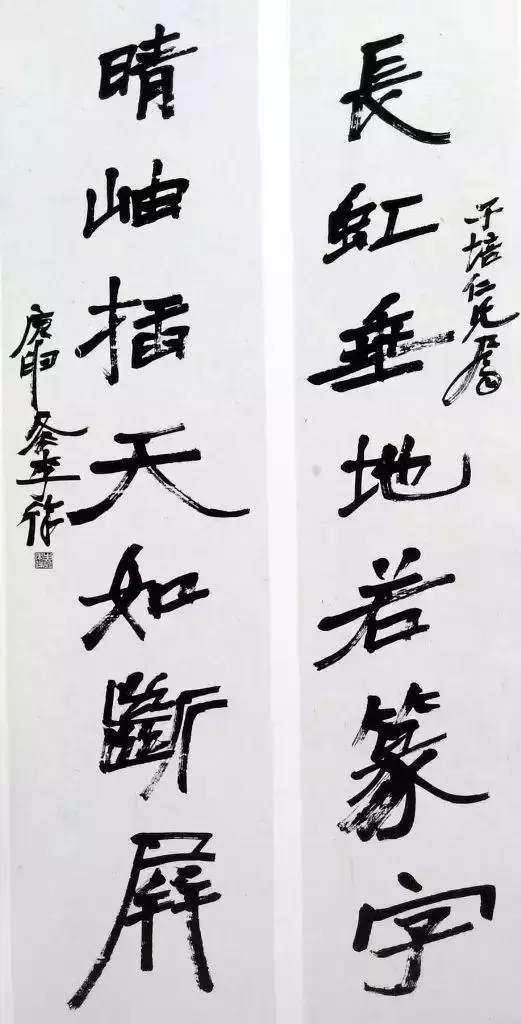 長虹垂地若篆字
子培仁兄屬
晴岫插天如斷屏
庚申冬平